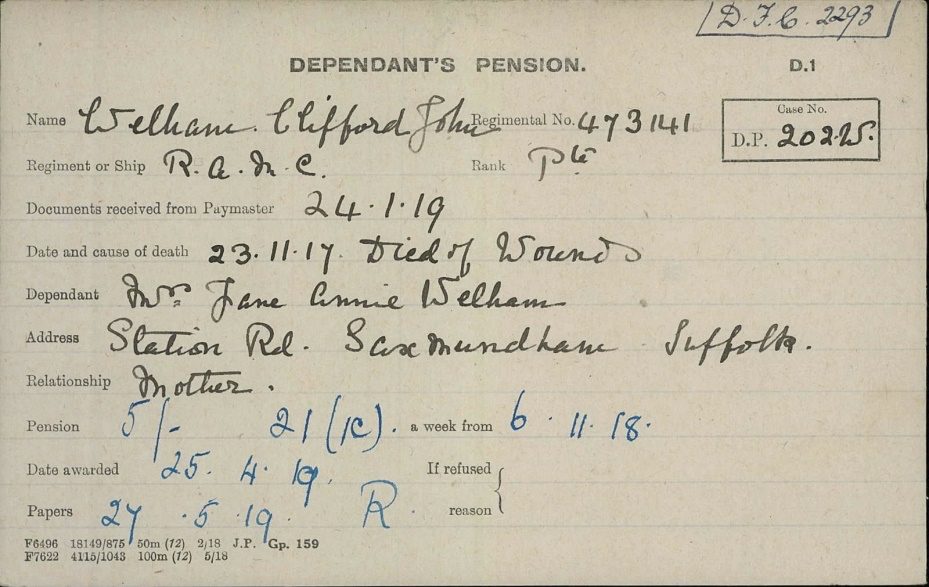 D.F.C. 2293
DEPENDANT'S PENSION.
D.1
Name Welham. Clifford John Regimental No. 473141
Case No.
D.P. 202.W.
Regiment or Ship R.A.M.C. Rank Pte
Documents received from Paymaster 24.1.19
Date and cause of death 23.11.17. Died of Wounds
Dependant Mrs Jane Annie Welham
Address Station Rd. Saxmundham Suffolk.
Relationship Mother.
Pension 5/- 21(1C). a week from 6.11.18.
Date awarded 25.4.19. If refused {
Papers 27.5.19. R. reason
F6496 18149/875 50m (12) 2/18 J.P. Gp. 159
F7622 4115/1043 100m (12) 5/18